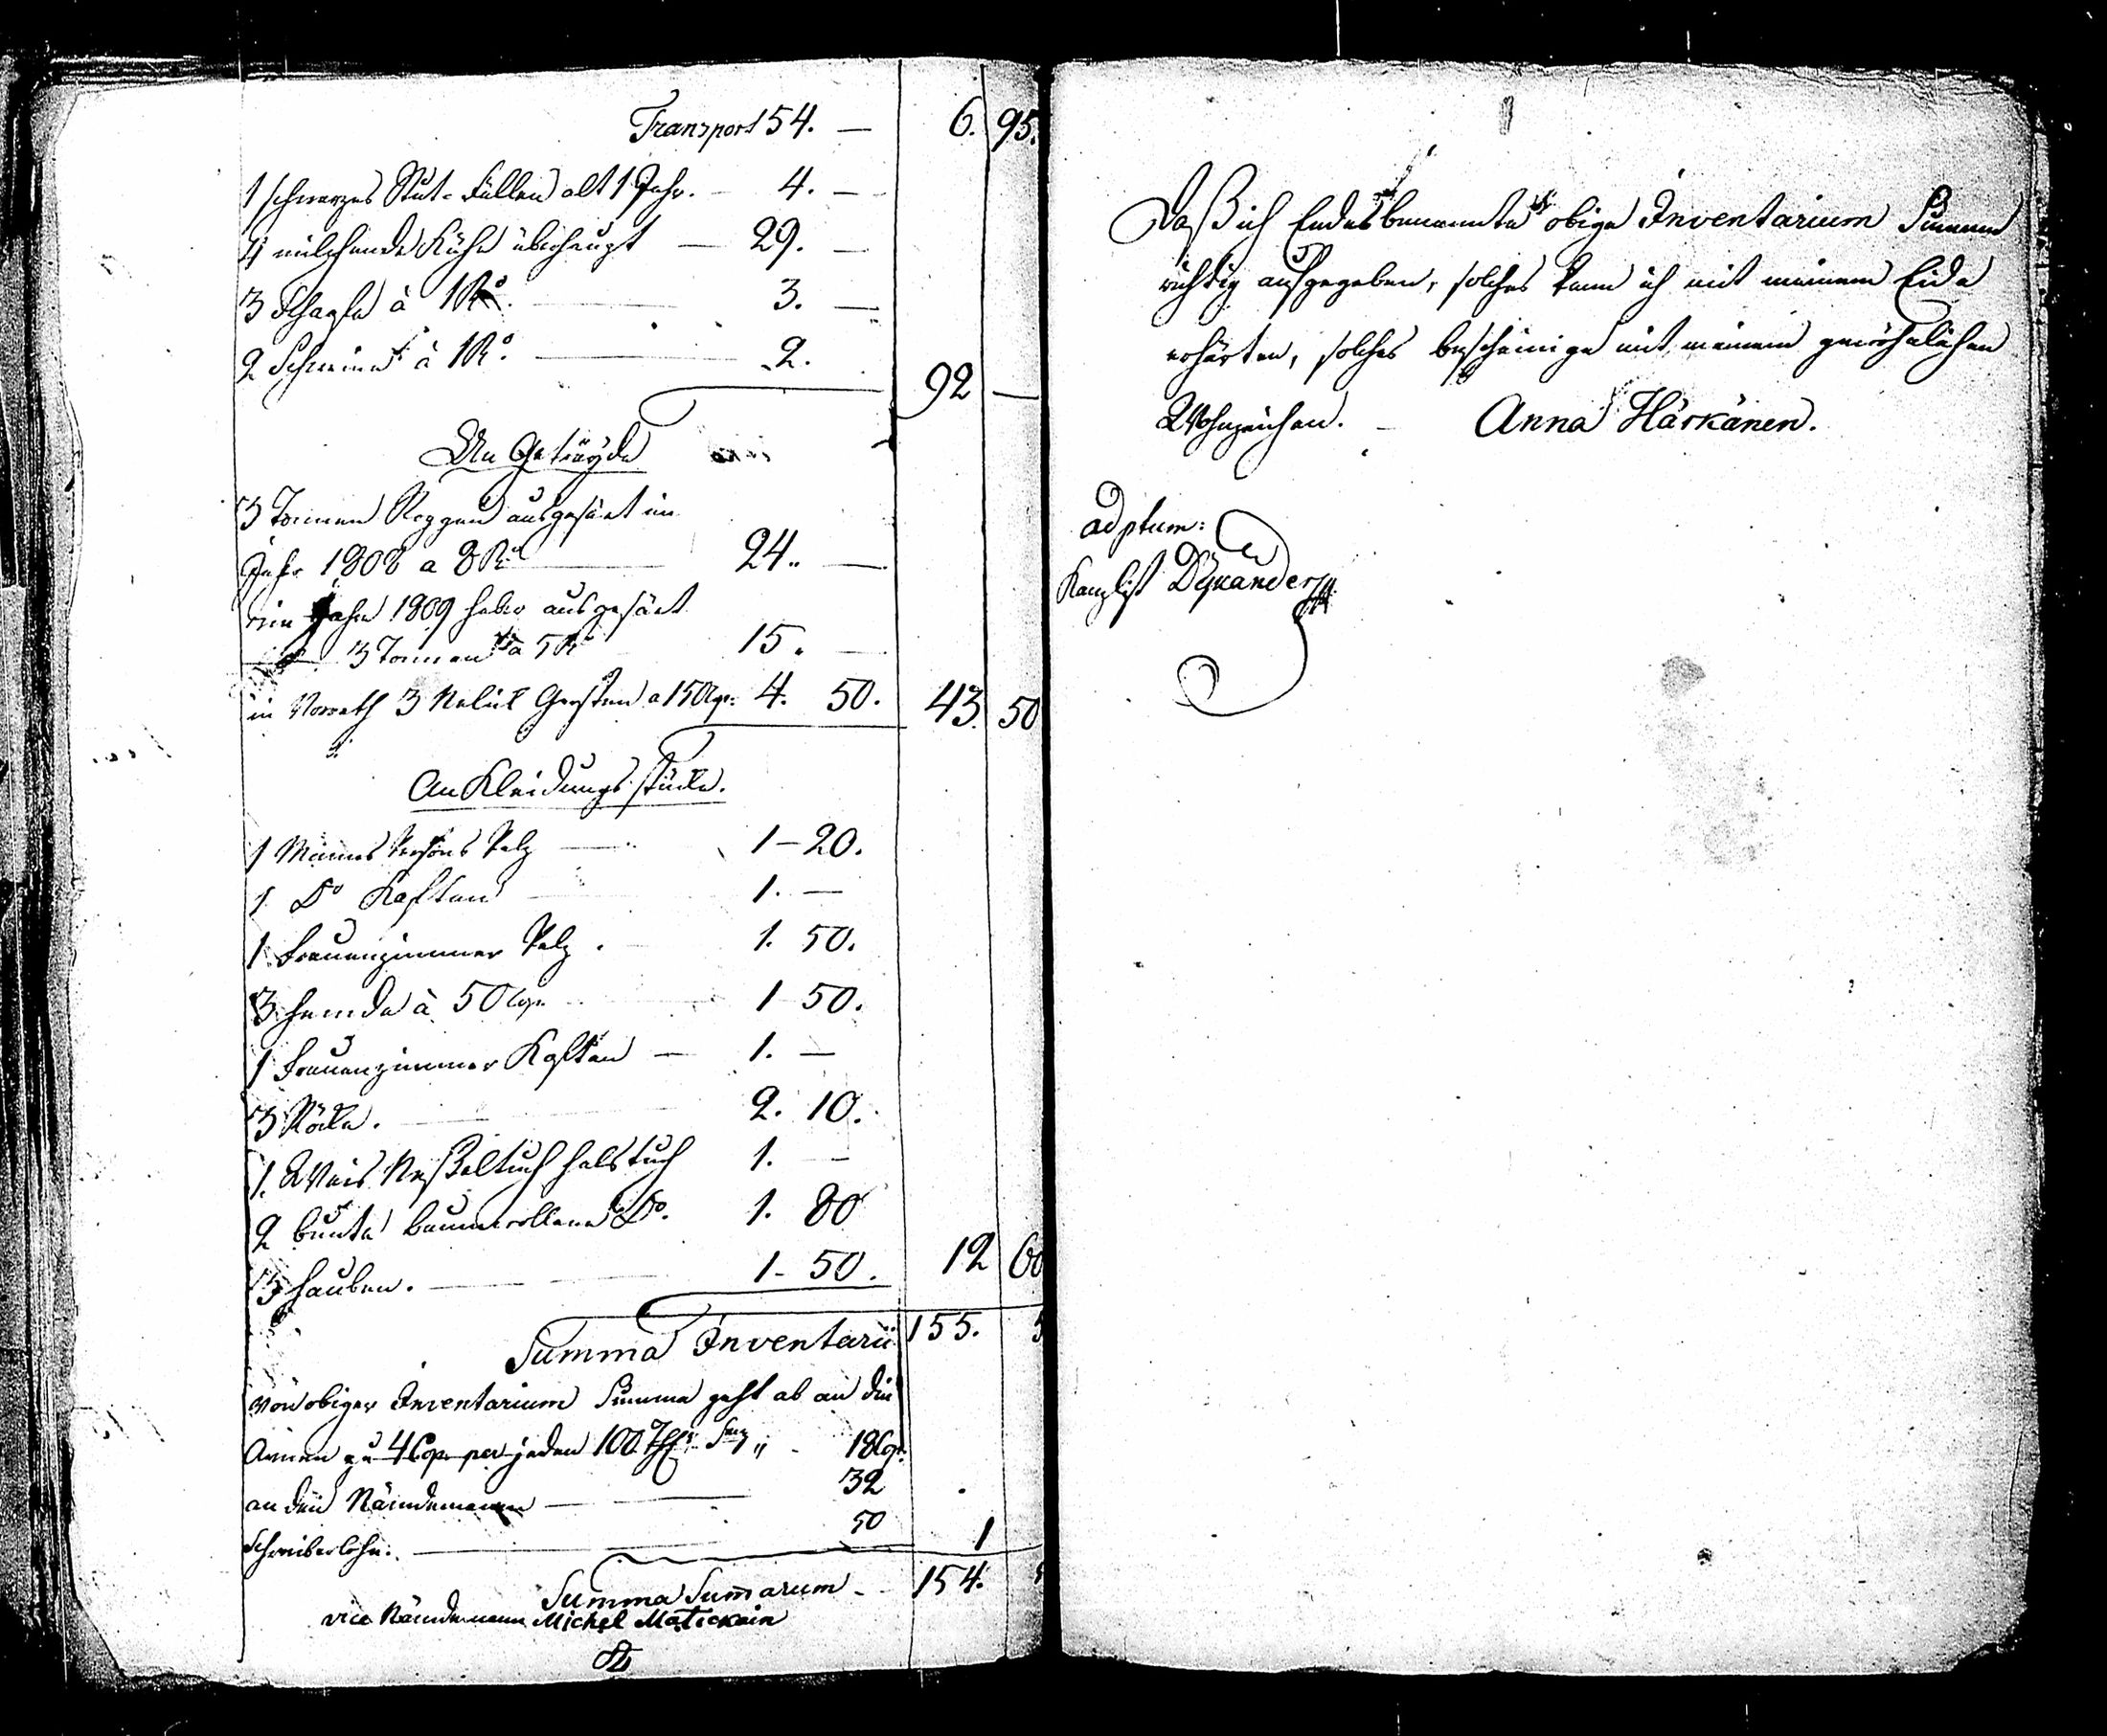 Transport 54. — 6. 95.
1 schwarzes Stut-Füllen alt 1 Jahr. — 4. —
4 milchende Kühe überhaupt — 29. —
3 Schaafe à 1 R. — 3. —
2 Schweine à 1 R. — 2. 92 —
An Geträyde
3 Tonnen Roggen ausgesäet im
Jahr 1808 a 8 R. — 24. —
im Jahre 1809 haber ausgesäet
3 Tonnen a 5 R — 15. —
in Vorrath 3 Gersten a 150 Cop: 4. 50. 43. 50
An Kleidungs stücke.
1 Manns Persons Pelz — 1-20.
1 Do Kaftan 1. —
1 Frauenzimmer Pelz. 1. 50.
3 hemde à 50 Cop. 1 50.
1 Frauenzimmer Kaftan — 1. —
3 Röcke. 2. 10.
1. Weis Neßeltuch halstuch 1. —
2 bunte baumwollene Do. 1. 80
3 hauben. — 1- 50. 12 60
Summa Inventarii 155. 5
Von obiger Inventarium Summa geht ab an die
Armen zu 4 Cop. per jeden 100 18 Cop.
an den Nämdemann — 32
Schreiberlohn. — 50 1
Summa Summarum - 154. 5
vice Nämdemann Michel Matickain
Daß ich Endesbenannte obige Inventarium Summa
richtig aufgegeben, solches kann ich mit meinem Eide
erhärten, solches bescheinige mit meinem gewöhnlichen
Wohnzeichen. — Anna Härkänen.
ad ptum:
Kanzlist Dÿkander